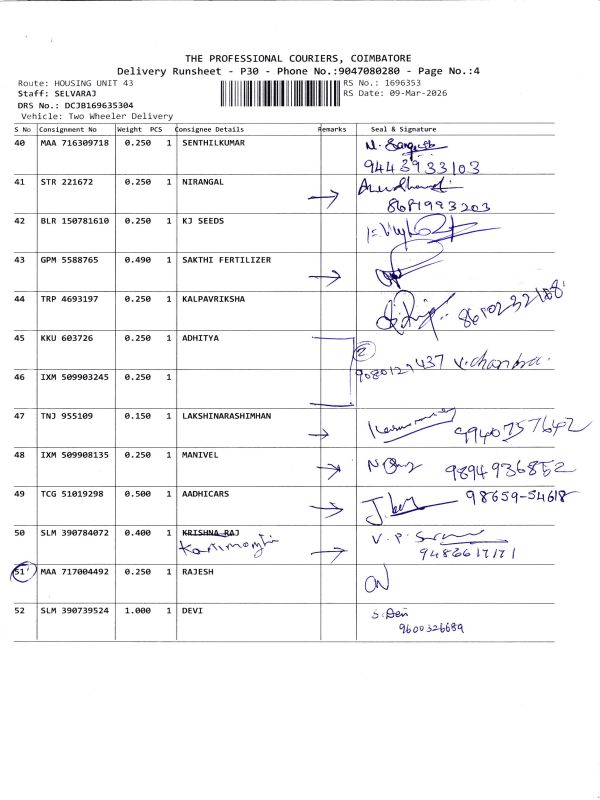 THE PROFESSIONAL COURIERS, COIMBATORE
Delivery Runsheet - P30 - Phone No.:9047080280 - Page No.:4
Route: HOUSING UNIT 43
RS No.: 1696353
Staff: SELVARAJ
RS Date: 09-Mar-2026
DRS No.: DCJB169635304
Vehicle: Two Wheeler Delivery
S No Consignment No Weight PCS Consignee Details Remarks Seal & Signature
40 MAA 716309718 0.250 1 SENTHILKUMAR
9443933103
41 STR 221672 0.250 1 NIRANGAL
8681993203
42 BLR 150781610 0.250 1 KJ SEEDS
43 GPM 5588765 0.490 1 SAKTHI FERTILIZER
44 TRP 4693197 0.250 1 KALPAVRIKSHA
45 KKU 603726 0.250 1 ADHITYA
2
46 IXM 509903245 0.250 1
9080127437 V.Chanthra.
47 TNJ 955109 0.150 1 LAKSHINARASHIMHAN
9940757642
48 IXM 509908135 0.250 1 MANIVEL
9894936852
49 TCG 51019298 0.500 1 AADHICARS
98659-54618
50 SLM 390784072 0.400 1 KRISHNA RAJ
V. P.
9486617171
51 MAA 717004492 0.250 1 RAJESH
52 SLM 390739524 1.000 1 DEVI S. Devi
9600326689